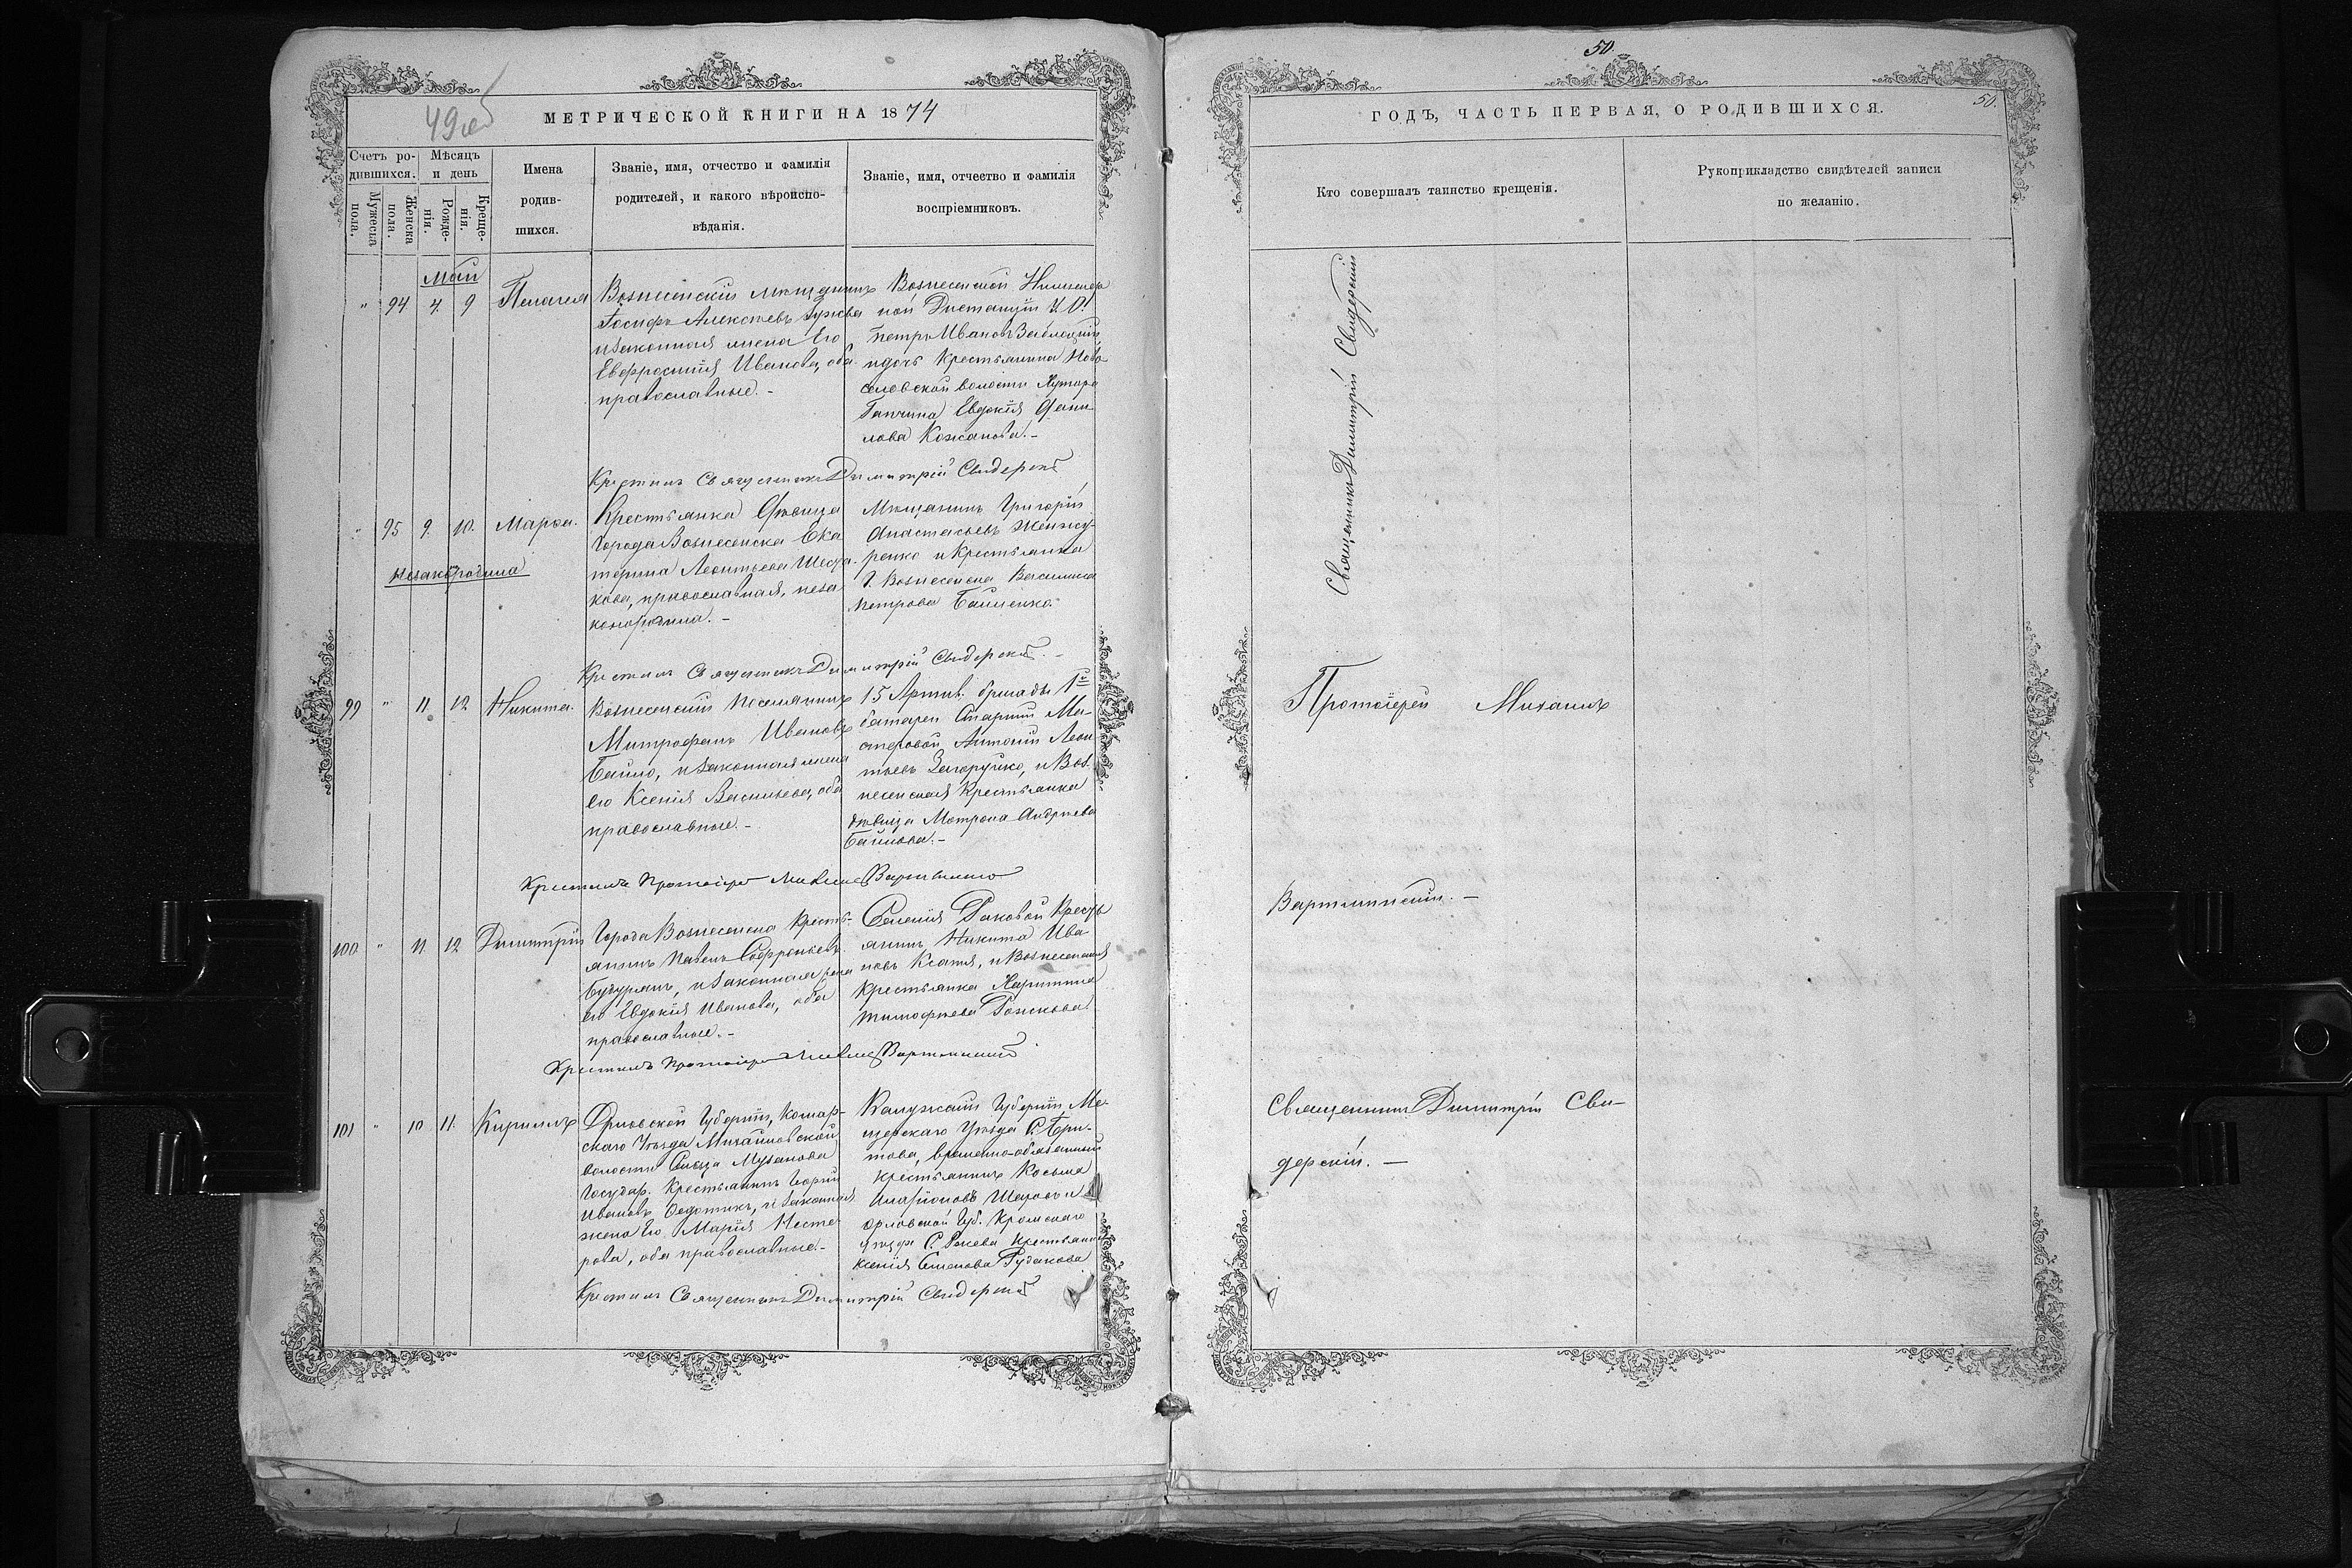 49об
МЕТРИЧЕСКОЙ КНИГИ НА 1874
Счетъ ро-
дившихся.
Мѣсяцъ
и день
Мужеска
пола.
Женска
пола.
Рожде-
нія.
Креще-
нія.
Имена
родив-
шихся.
Званіе, имя, отчество и фамилія
родителей, и какого вѣроиспо-
вѣданія.
Званіе, имя, отчество и фамилія
воспріемниковъ.
Май
" 94 4. 9 Пелагея
Вознесенскій мѣщанинъ
Іосифъ Алексѣевъ
и законная жена его
Евфросинія Иванова, оба
православные.-
Вознесенской
ной Дистанціи
Петръ Ивановъ
и дочь крестьянина Ново
селовской волости Хутора
Ганчина Евдокія Дани
лова Кожанова.-
Крестилъ Священникъ Димитрій Свидерскій
" 95 9. 10. Марѳа.
Незаконорожденна
Крестьянка Дѣвица
Города Вознесенска Ека
терина Леонтьева Шеста
кова, православная, неза
Мѣщанинъ Григорій
Анастасьевъ
ренко и крестьянка
Г. Вознесенска Василиса
Петрова
Крестилъ Священникъ Димитрій Свидерскій.-
99 " 11. 12 Никита.
Вознесенскій поселянинъ
Митрофанъ Ивановъ
Байло, и законная жена
его Ксенія Васильева, оба
православные.-
15 Артил. бригады 1й
батареи Старшій Ма-
стеровой Антоній Леон
тьевъ Загоруйко, и Воз
несенская крестьянка
дѣвица Матрона Андреева
Байлова.-
Крестилъ Протоіерей Михаилъ Вартминскій
100 " 11 12 Димитрій
Города Вознесенска Кресть-
янинъ Павелъ Софроньевъ
и законная жена
его Евдокія Иванова, оба
православные.-
Селенія Раковой Кресть
янинъ Никита Ива
новъ и Вознесенская
Крестьянка Харитина
Тимофеева
Крестилъ Протоіерей Михаилъ Вартминскій
101 " 10 11. Кириллъ
Орловской Губерніи,
скаго Уѣзда Михайловской
волости Сельца
Государ. Крестьянинъ
Ивановъ и законная
жена его Марія Несте
рова, оба православные.-
Калужской Губерніи Ме-
щерскаго Уѣзда С.
това, временно-обязанный
крестьянинъ Косьма
и
Орловской Губ. Кромскаго
уѣзда С. Крестьянка
Ксенія Семенова Рудакова
Крестилъ Священникъ Димитрій Свидерскій
50.
50.
ГОДЪ, ЧАСТЬ ПЕРВАЯ, О РОДИВШИХСЯ.
Кто совершалъ таинство крещенія.
Рукоприкладство свидѣтелей записи
по желанію.
Священникъ Димитрій Свидерскій
Протоіерей Михаилъ
Вартминскій.-
Священникъ Димитрій Сви-
дерскій.-